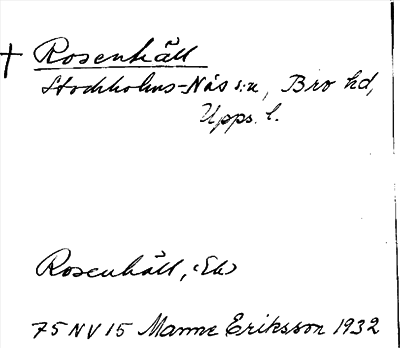 † Rosenhäll
Stockholms-Näs s:n, Bro hd,
Upps. l.
Rosenhäll, (Ek)
75 NV 15 Manne Eriksson 1932